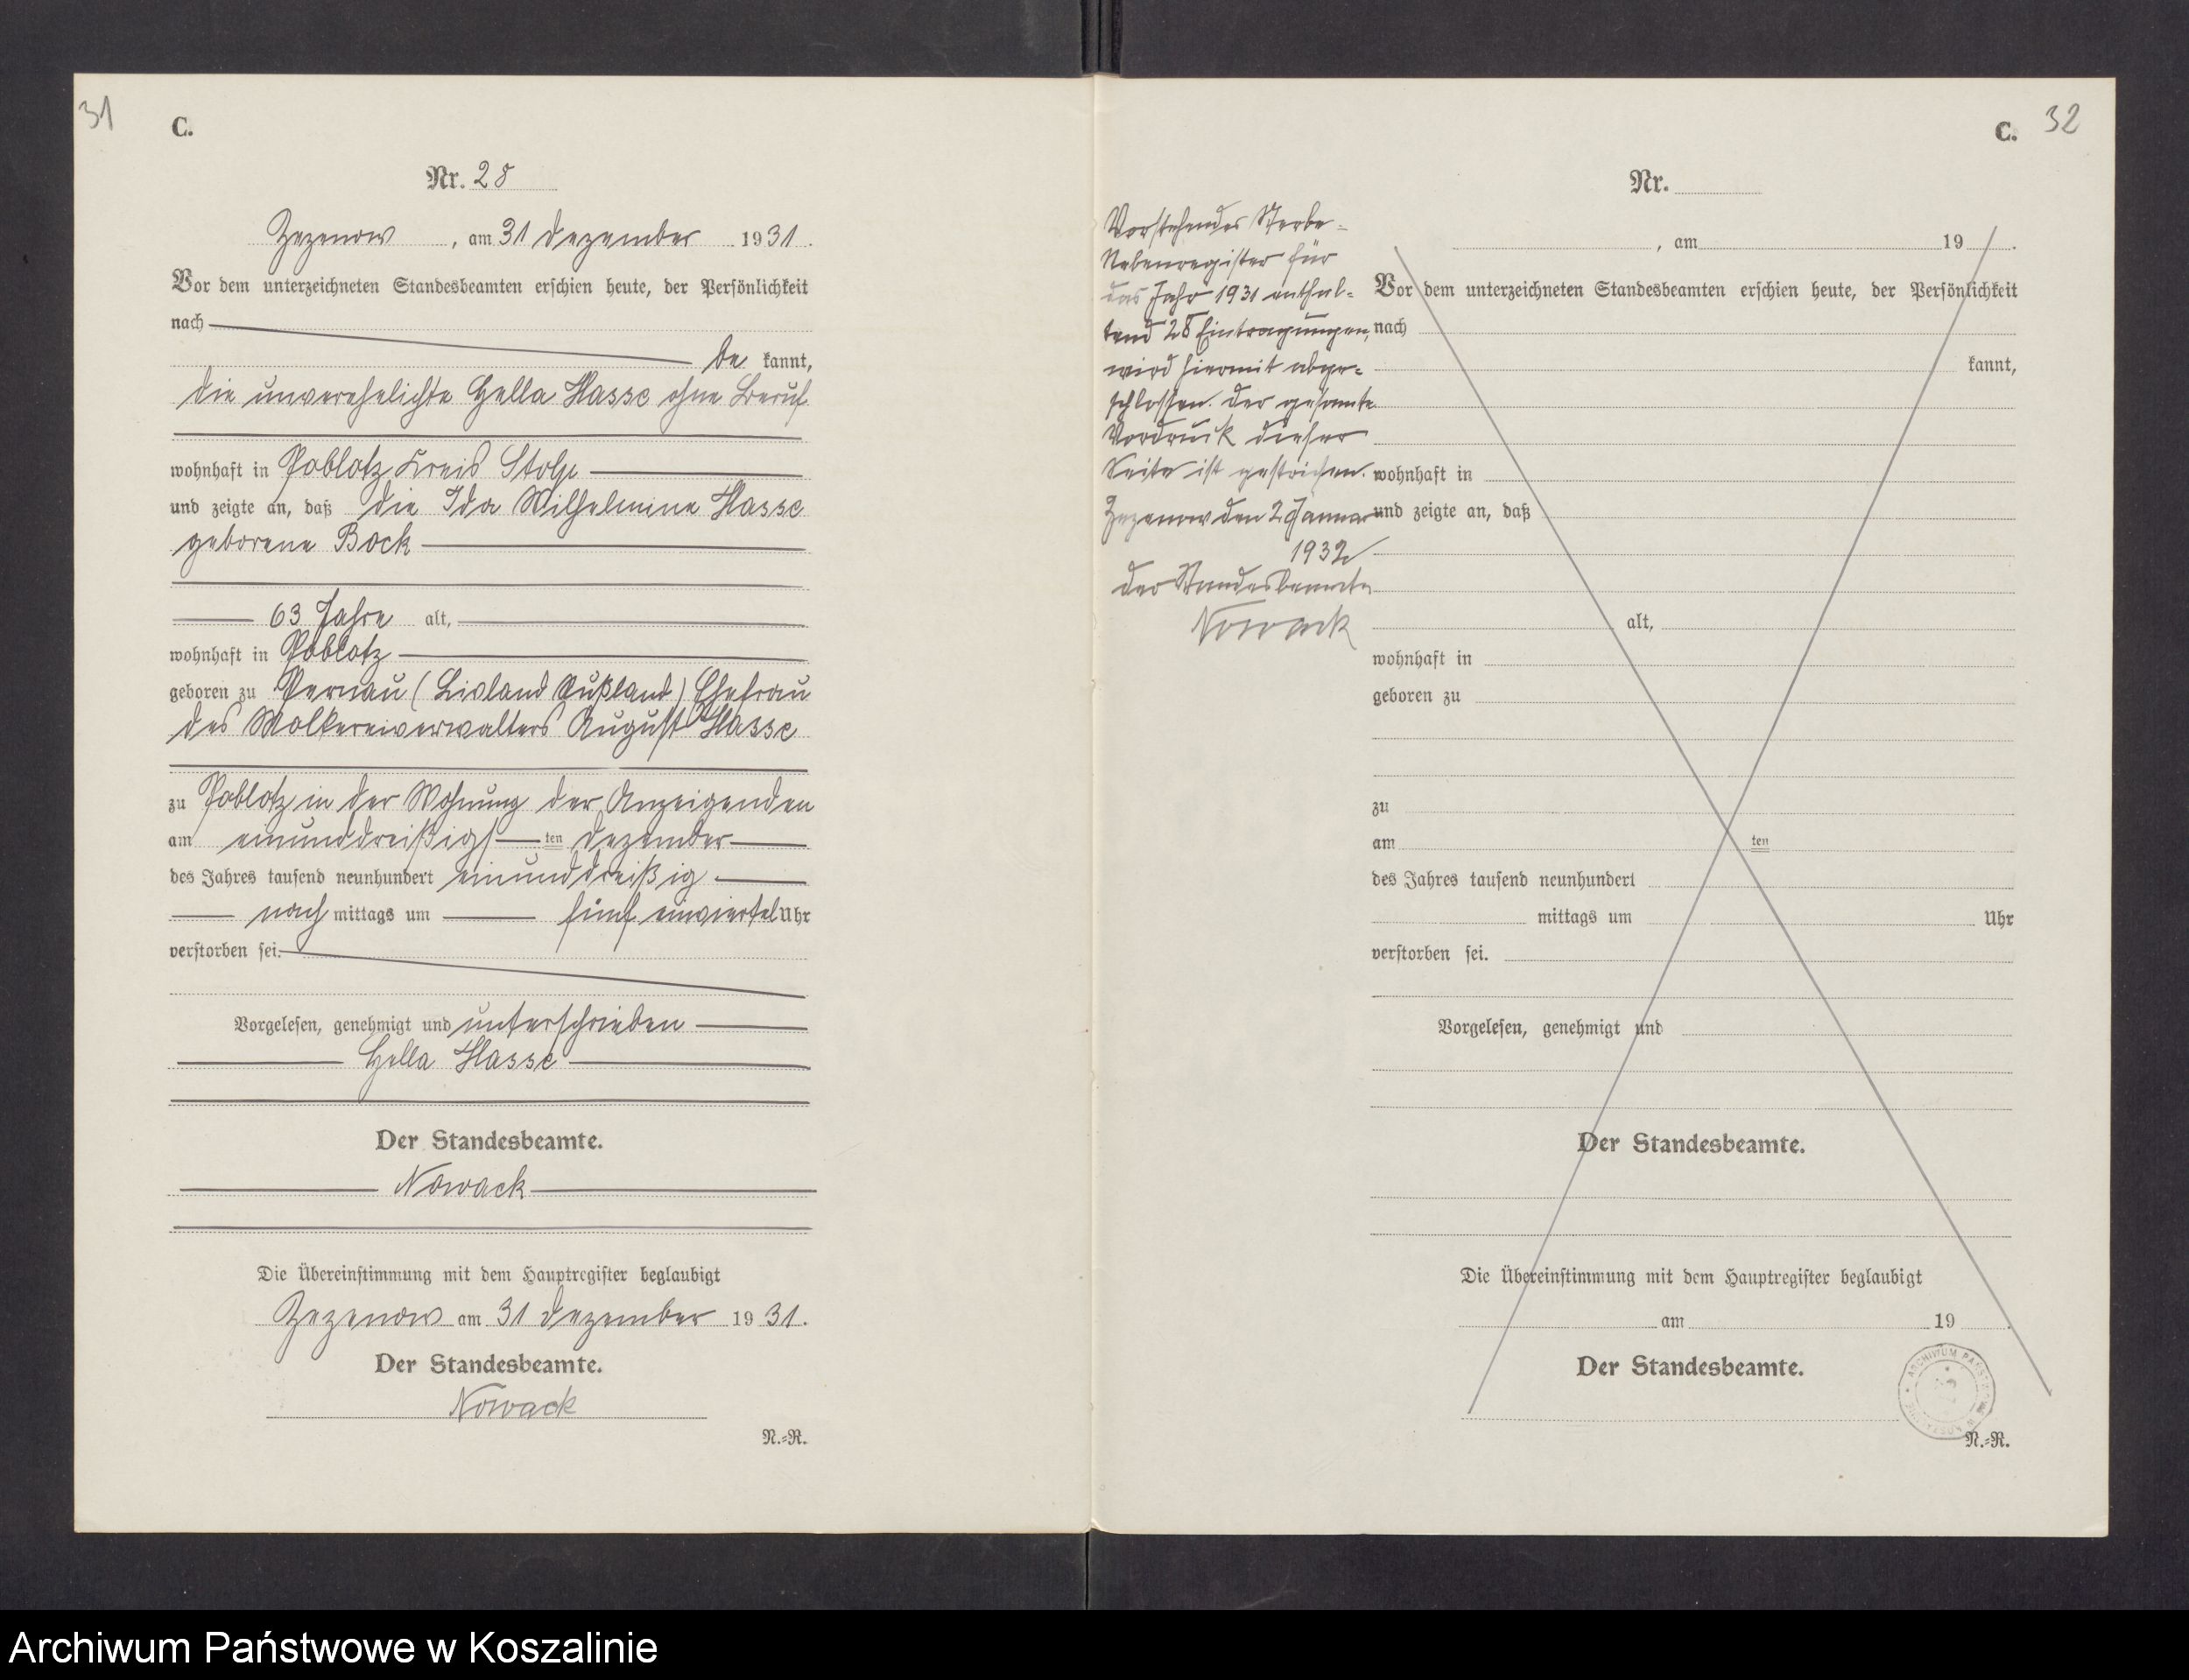 31
C.
Nr. 28
Zezenow, am 31 Dezember 1931.
Vor dem unterzeichneten Standesbeamten erschien heute, der Persönlichkeit
nach
be kannt,
die unverehelichte Hella Hasse ohne Beruf
wohnhaft in Poblotz Kreis Stolp
und zeigte an, daß die Ida Wilhelmine Hasse
geborene Bock
63 Jahre alt,
wohnhaft in Poblotz
geboren zu Pernau (Livland Rußland) Ehefrau
des Molkereiverwalters August Hasse
zu Poblotz in der Wohnung der Anzeigenden
am einunddreißigsten Dezember
des Jahres tausend neunhundert einunddreißig
nach mittags um fünf einviertel Uhr
verstorben sei.
Vorgelesen, genehmigt und unterschrieben
Hella Hasse
Der Standesbeamte.
Nowack
Die Übereinstimmung mit dem Hauptregister beglaubigt
Zezenow am 31 Dezember 1931.
Der Standesbeamte.
Nowack
N.=R.
C. 32
Vorstehendes Sterbe=
Nebenregister für
das Jahr 1931 enthal=
tend 28 Eintragungen,
wird hiermit abge=
schlossen. Der gesamte
Vordruck dieser
Seite ist gestrichen.
Zezenow den 2 Januar
1932
Der Standesbeamte
Nowack
Nr.
, am 19 .
Vor dem unterzeichneten Standesbeamten erschien heute, der Persönlichkeit
nach
kannt,
wohnhaft in
und zeigte an, daß
alt,
wohnhaft in
geboren zu
zu
am ten
des Jahres tausend neunhundert
mittags um Uhr
verstorben sei.
Vorgelesen, genehmigt und
Der Standesbeamte.
Die Übereinstimmung mit dem Hauptregister beglaubigt
am 19 .
Der Standesbeamte.
ARCHIWUM
N.=R.
Archiwum Państwowe w Koszalinie